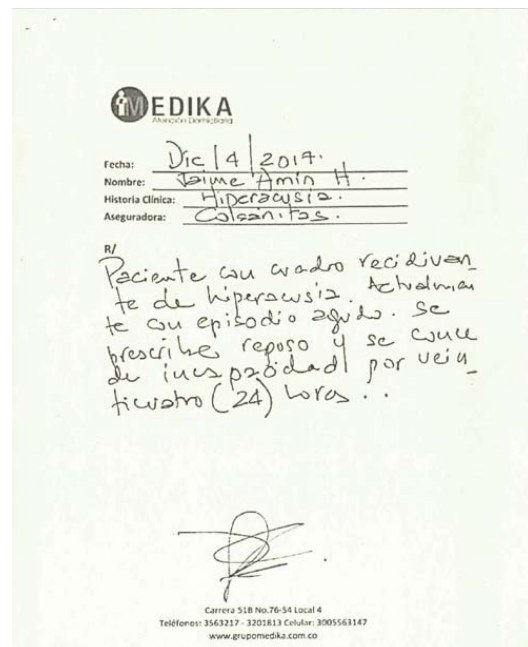 MEDIKA
Atención Domiciliaria
Fecha: Dic/4/2017.
Nombre: Jaime Amín H.
Historia Clínica: Hiperacusia.
Aseguradora: Colsanitas.
R/
Paciente con cuadro recidivan_
te de hiperacusia. Actualmen
te con episodio agudo. Se
prescribe reposo y se conce
de incapacidad por vein_
ticuatro (24) horas..
Carrera 51B No.76-54 Local 4
Teléfonos: 3563217 - 3201813 Celular: 3005563147
www.grupomedika.com.co